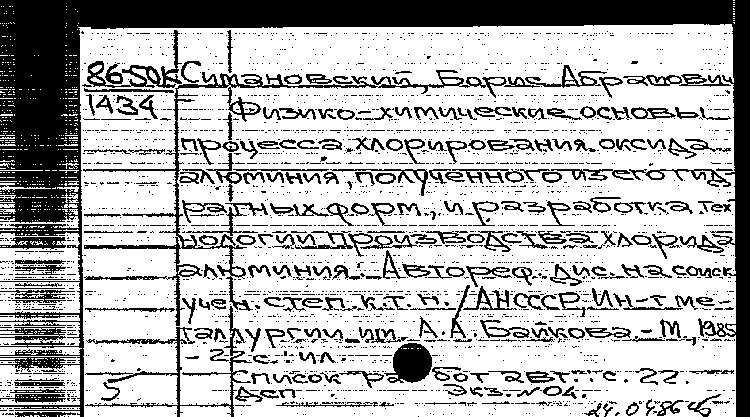 86-50К Симановский, Борис Абрамович
1434 Физико-химические основы
процесса хлорирования оксида
алюминия, полученного из его гид-
ратных форм, и разработка тех
нологии производства хлорида
алюминия: Автореф. дис. на соиск
учен. степ. к.т.н. / АН СССР, Ин-т ме-
таллургии им. А.А. Байкова. - М., 1985
- 22 с.: ил.
Список работ авт.: с. 22.
5 ДСП Экз. № 04.